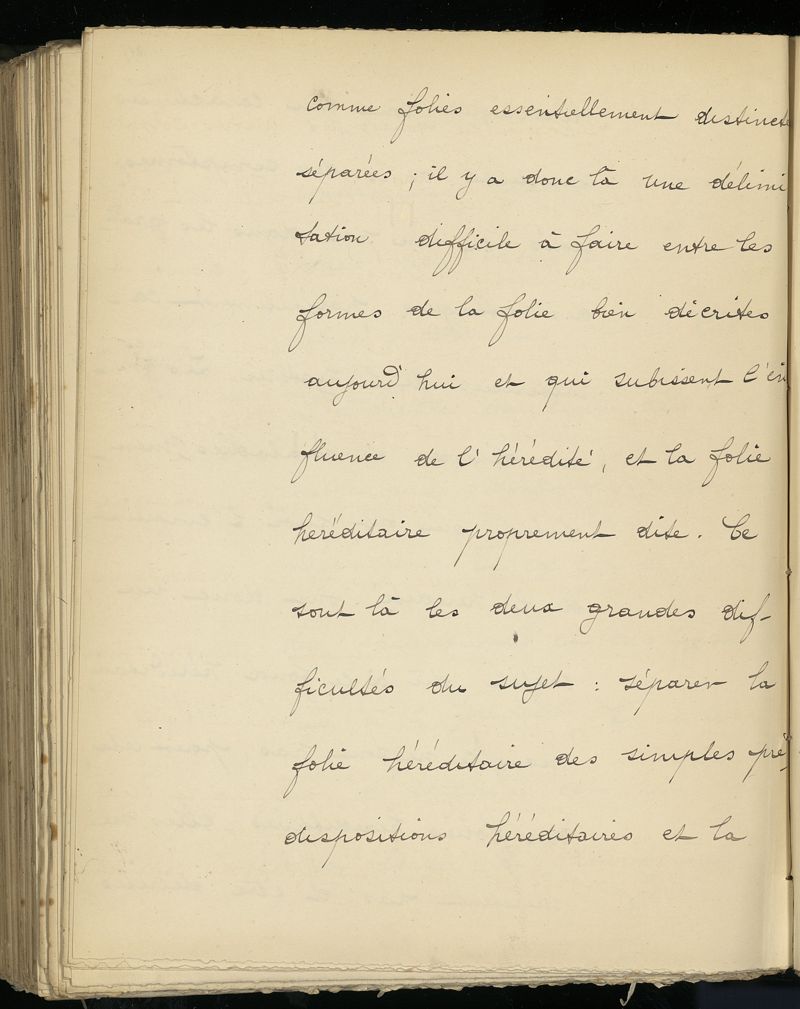 comme folies essentiellement distincte
séparées ; il y a donc là une délimi
tation difficile à faire entre les
formes de la folie bien décrites
aujourd'hui et qui subissent l'in
fluence de l'hérédité, et la folie
heréditaire proprement dite. Ce
sont là les deux grandes dif-
ficultés du sujet : séparer la
folie héréditaire des simples pré-
dispositions héréditaires et la